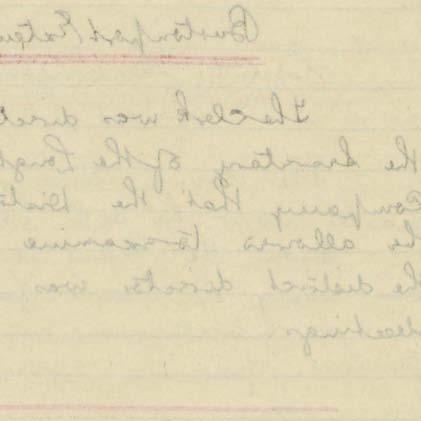 Burtonport Exten
The Clerk was direc
the Secretary of the Lough
Company that the Distri
be allowed to examine
the district director was
meetings